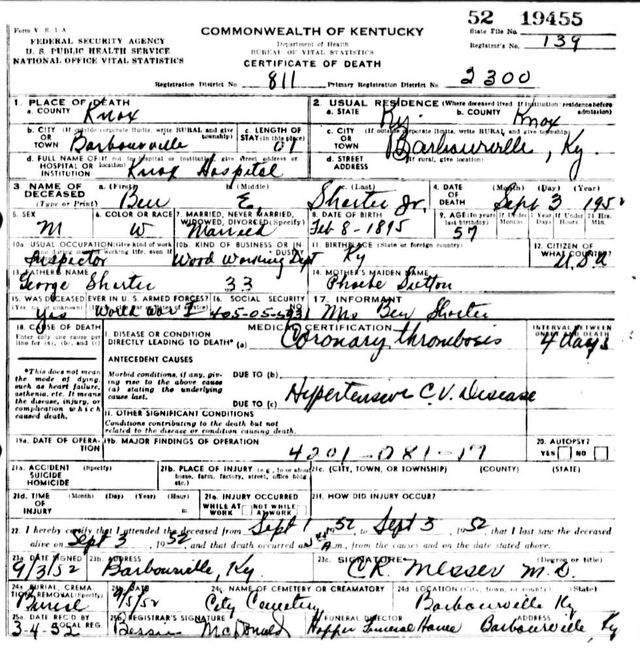 52 19455
Form V. S. 1-A
State File No.
FEDERAL SECURITY AGENCY
U. S. PUBLIC HEALTH SERVICE
NATIONAL OFFICE VITAL STATISTICS
COMMONWEALTH OF KENTUCKY
Department of Health
BUREAU OF VITAL STATISTICS
CERTIFICATE OF DEATH
Registrar's No. 139
Registration District No. 811 Primary Registration District No. 2300
1. PLACE OF DEATH
a. COUNTY Knox
2. USUAL RESIDENCE (Where deceased lived. If institution: residence before admission)
a. STATE Ky. b. COUNTY Knox
b. CITY (If outside corporate limits, write RURAL and give township) OR TOWN Barbourville
c. LENGTH OF STAY (in this place)
c. CITY (If outside corporate limits, write RURAL and give township) OR TOWN Barbourville, Ky.
d. FULL NAME OF (If not in hospital or institution, give street address or location) HOSPITAL OR INSTITUTION Knox Hospital
d. STREET ADDRESS (If rural, give location)
3. NAME OF DECEASED (Type or Print) a. (First) Ben b. (Middle) E. c. (Last) Shorter Jr.
4. DATE OF DEATH (Month) (Day) (Year) Sept 3 1952
5. SEX M
6. COLOR OR RACE W
7. MARRIED, NEVER MARRIED, WIDOWED, DIVORCED (Specify) Married
8. DATE OF BIRTH Feb 8-1895
9. AGE (In years last birthday) 57 If Under 1 Year Months Days If Under 24 Hrs. Hours Min.
10a. USUAL OCCUPATION (Give kind of work done during most of working life, even if retired) Inspector
10b. KIND OF BUSINESS OR INDUSTRY Wood Working Dept
11. BIRTHPLACE (State or foreign country) Ky
12. CITIZEN OF WHAT COUNTRY? U.S.A
13. FATHER'S NAME George Shorter 33
14. MOTHER'S MAIDEN NAME Phoebe Sutton
15. WAS DECEASED EVER IN U. S. ARMED FORCES? Yes World War I
16. SOCIAL SECURITY NO. 405-05-
17. INFORMANT Mrs Ben Shorter
18. CAUSE OF DEATH
Enter only one cause per line for (a), (b), and (c)
MEDICAL CERTIFICATION
INTERVAL BETWEEN ONSET AND DEATH
I. DISEASE OR CONDITION DIRECTLY LEADING TO DEATH* (a) Coronary thrombosis 4 days
*This does not mean the mode of dying, such as heart failure, asthenia, etc. It means the disease, injury, or complication which caused death.
ANTECEDENT CAUSES
Morbid conditions, if any, giving rise to the above cause (a) stating the underlying cause last.
DUE TO (b)
DUE TO (c) Hypertensive C.V. Disease
II. OTHER SIGNIFICANT CONDITIONS
Conditions contributing to the death but not related to the disease or condition causing death.
19a. DATE OF OPERATION
19b. MAJOR FINDINGS OF OPERATION
4201-081-17
20. AUTOPSY? YES NO
21a. ACCIDENT SUICIDE HOMICIDE (Specify)
21b. PLACE OF INJURY (e.g., in or about home, farm, factory, street, office bldg., etc.)
21c. (CITY, TOWN, OR TOWNSHIP) (COUNTY) (STATE)
21d. TIME OF INJURY (Month) (Day) (Year) (Hour)
21e. INJURY OCCURRED WHILE AT WORK NOT WHILE AT WORK
21f. HOW DID INJURY OCCUR?
22. I hereby certify that I attended the deceased from Sept 1 1952, to Sept 3, 1952 that I last saw the deceased
alive on Sept 3, 1952, and that death occurred at A m., from the causes and on the date stated above.
23a. DATE SIGNED 9/3/52
23b. ADDRESS Barbourville, Ky.
23c. SIGNATURE (Degree or title) C.R. Messer M.D.
24a. BURIAL, CREMATION, REMOVAL (Specify) Burial
24b. DATE 9/5/52
24c. NAME OF CEMETERY OR CREMATORY City Cemetery
24d. LOCATION (City, town, or county) (State) Barbourville Ky
25a. DATE REC'D BY LOCAL REG. 3-4-52
25b. REGISTRAR'S SIGNATURE Bessie McDonald
FUNERAL DIRECTOR Hopper Funeral House
ADDRESS Barbourville, Ky